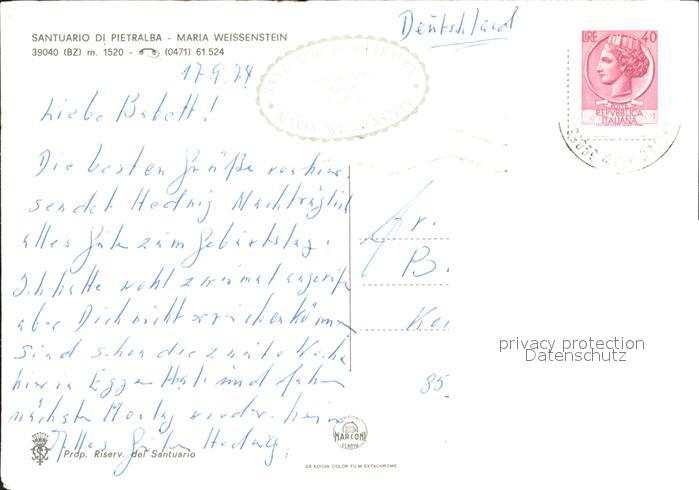 SANTUARIO DI PIETRALBA - MARIA WEISSENSTEIN
39040 (BZ) m. 1520 - (0471) 61.524
Deutschland
SANTUARIO DI PIETRALBA
MARIA WEISSENSTEIN
LIRE 40
POSTE
REPVBBLICA
ITALIANA
17.9.74
Liebe Babett!
Die besten Grüße von hier
sendet Hedwig. Nachträglich
alles Gute zum Geburtstag.
Ich hatte wohl zweimal angerufen
aber Dich nicht erreichen können
sind schon die zweite Woche
hier in Eggen Thal und fahren
nächsten Montag wieder heim
Alles Gute Hedwig.
Fr.
B.
85
privacy protection
Datenschutz
MARCONI
GENOVA
Prop. Riserv. del Santuario
DA KODAK COLOR FILM EXTACHROME